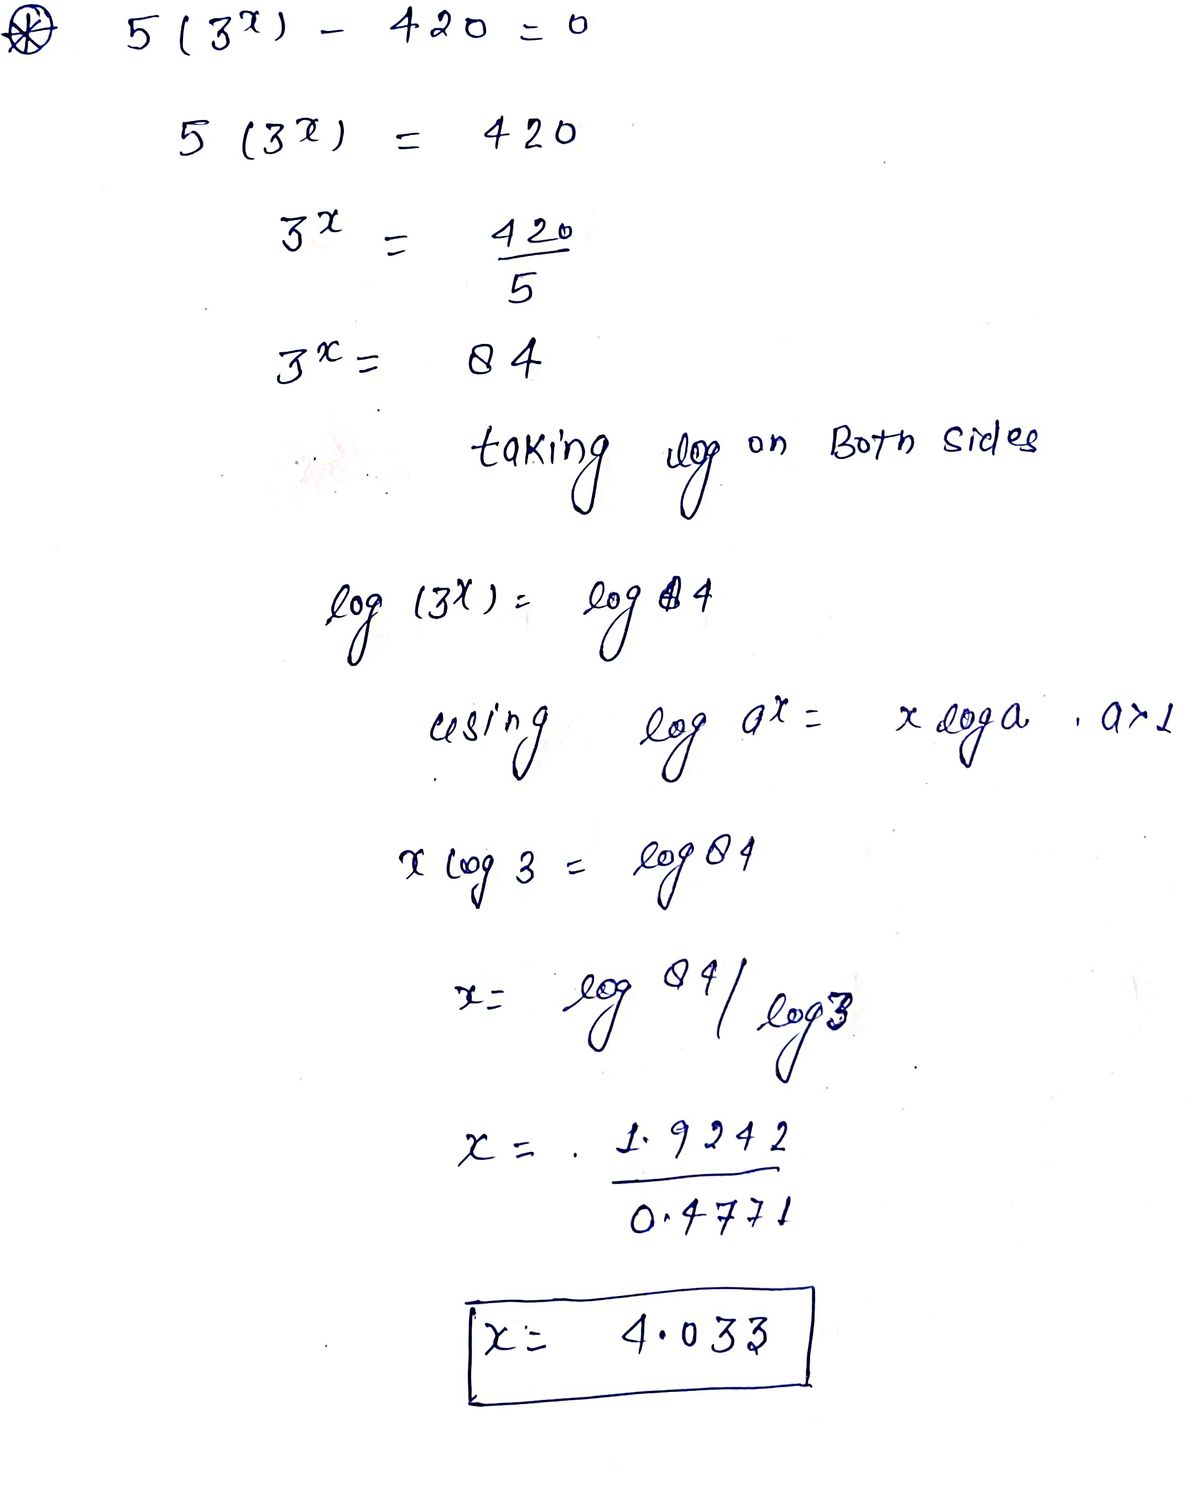 5(3^x) - 420 = 0
5(3^x) = 420
3^x = 420/5
3^x = 84
taking log on Both sides
log (3^x) = log 84
using log a^x = x log a . a>1
x log 3 = log 84
x = log 84/log3
x = 1.9242/0.4771
x = 4.033